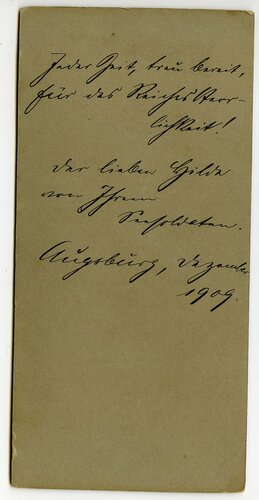 Jeder Zeit, treu bereit,
für des Reiches Herr-
lichkeit!
Der lieben Hilde
von Ihrem
Seesoldaten.
Augsburg, Dezember
1909.